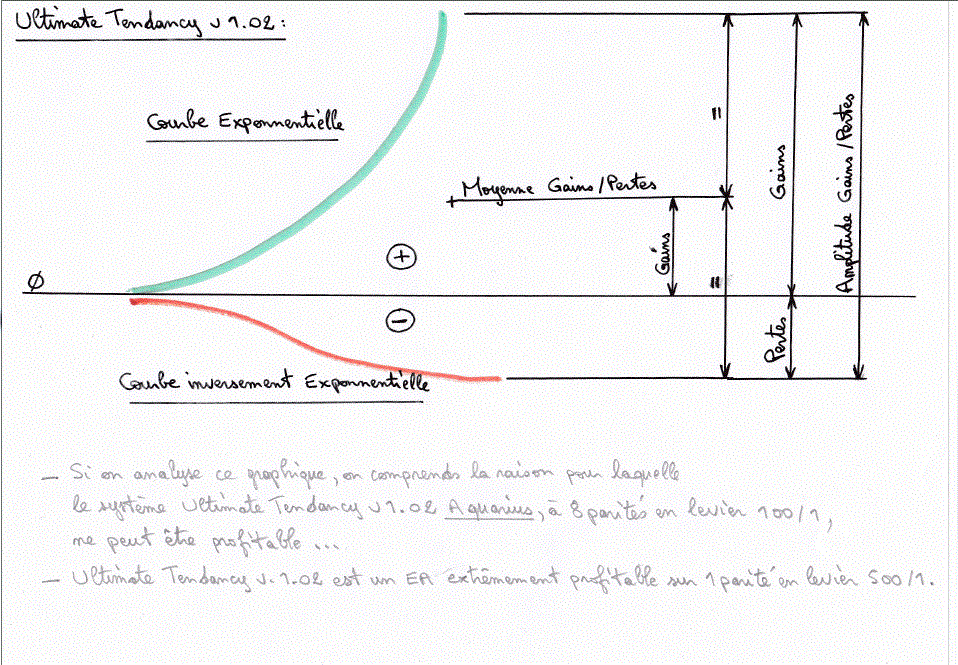 Ultimate Tendancy v 1.02 :
Courbe Exponnentielle
Moyenne Gains/Pertes
=
Gains
Gains
=
Amplitude Gains/Pertes
Ø
+
−
Pertes
Courbe inversement Exponnentielle
— Si on analyse ce graphique, on comprends la raison pour laquelle
le système Ultimate Tendancy v 1.02 Aquarius, à 8 parités en levier 100/1,
ne peut être profitable ...
— Ultimate Tendancy v. 1.02 est un EA extrêmement profitable sur 1 parité en levier 500/1.